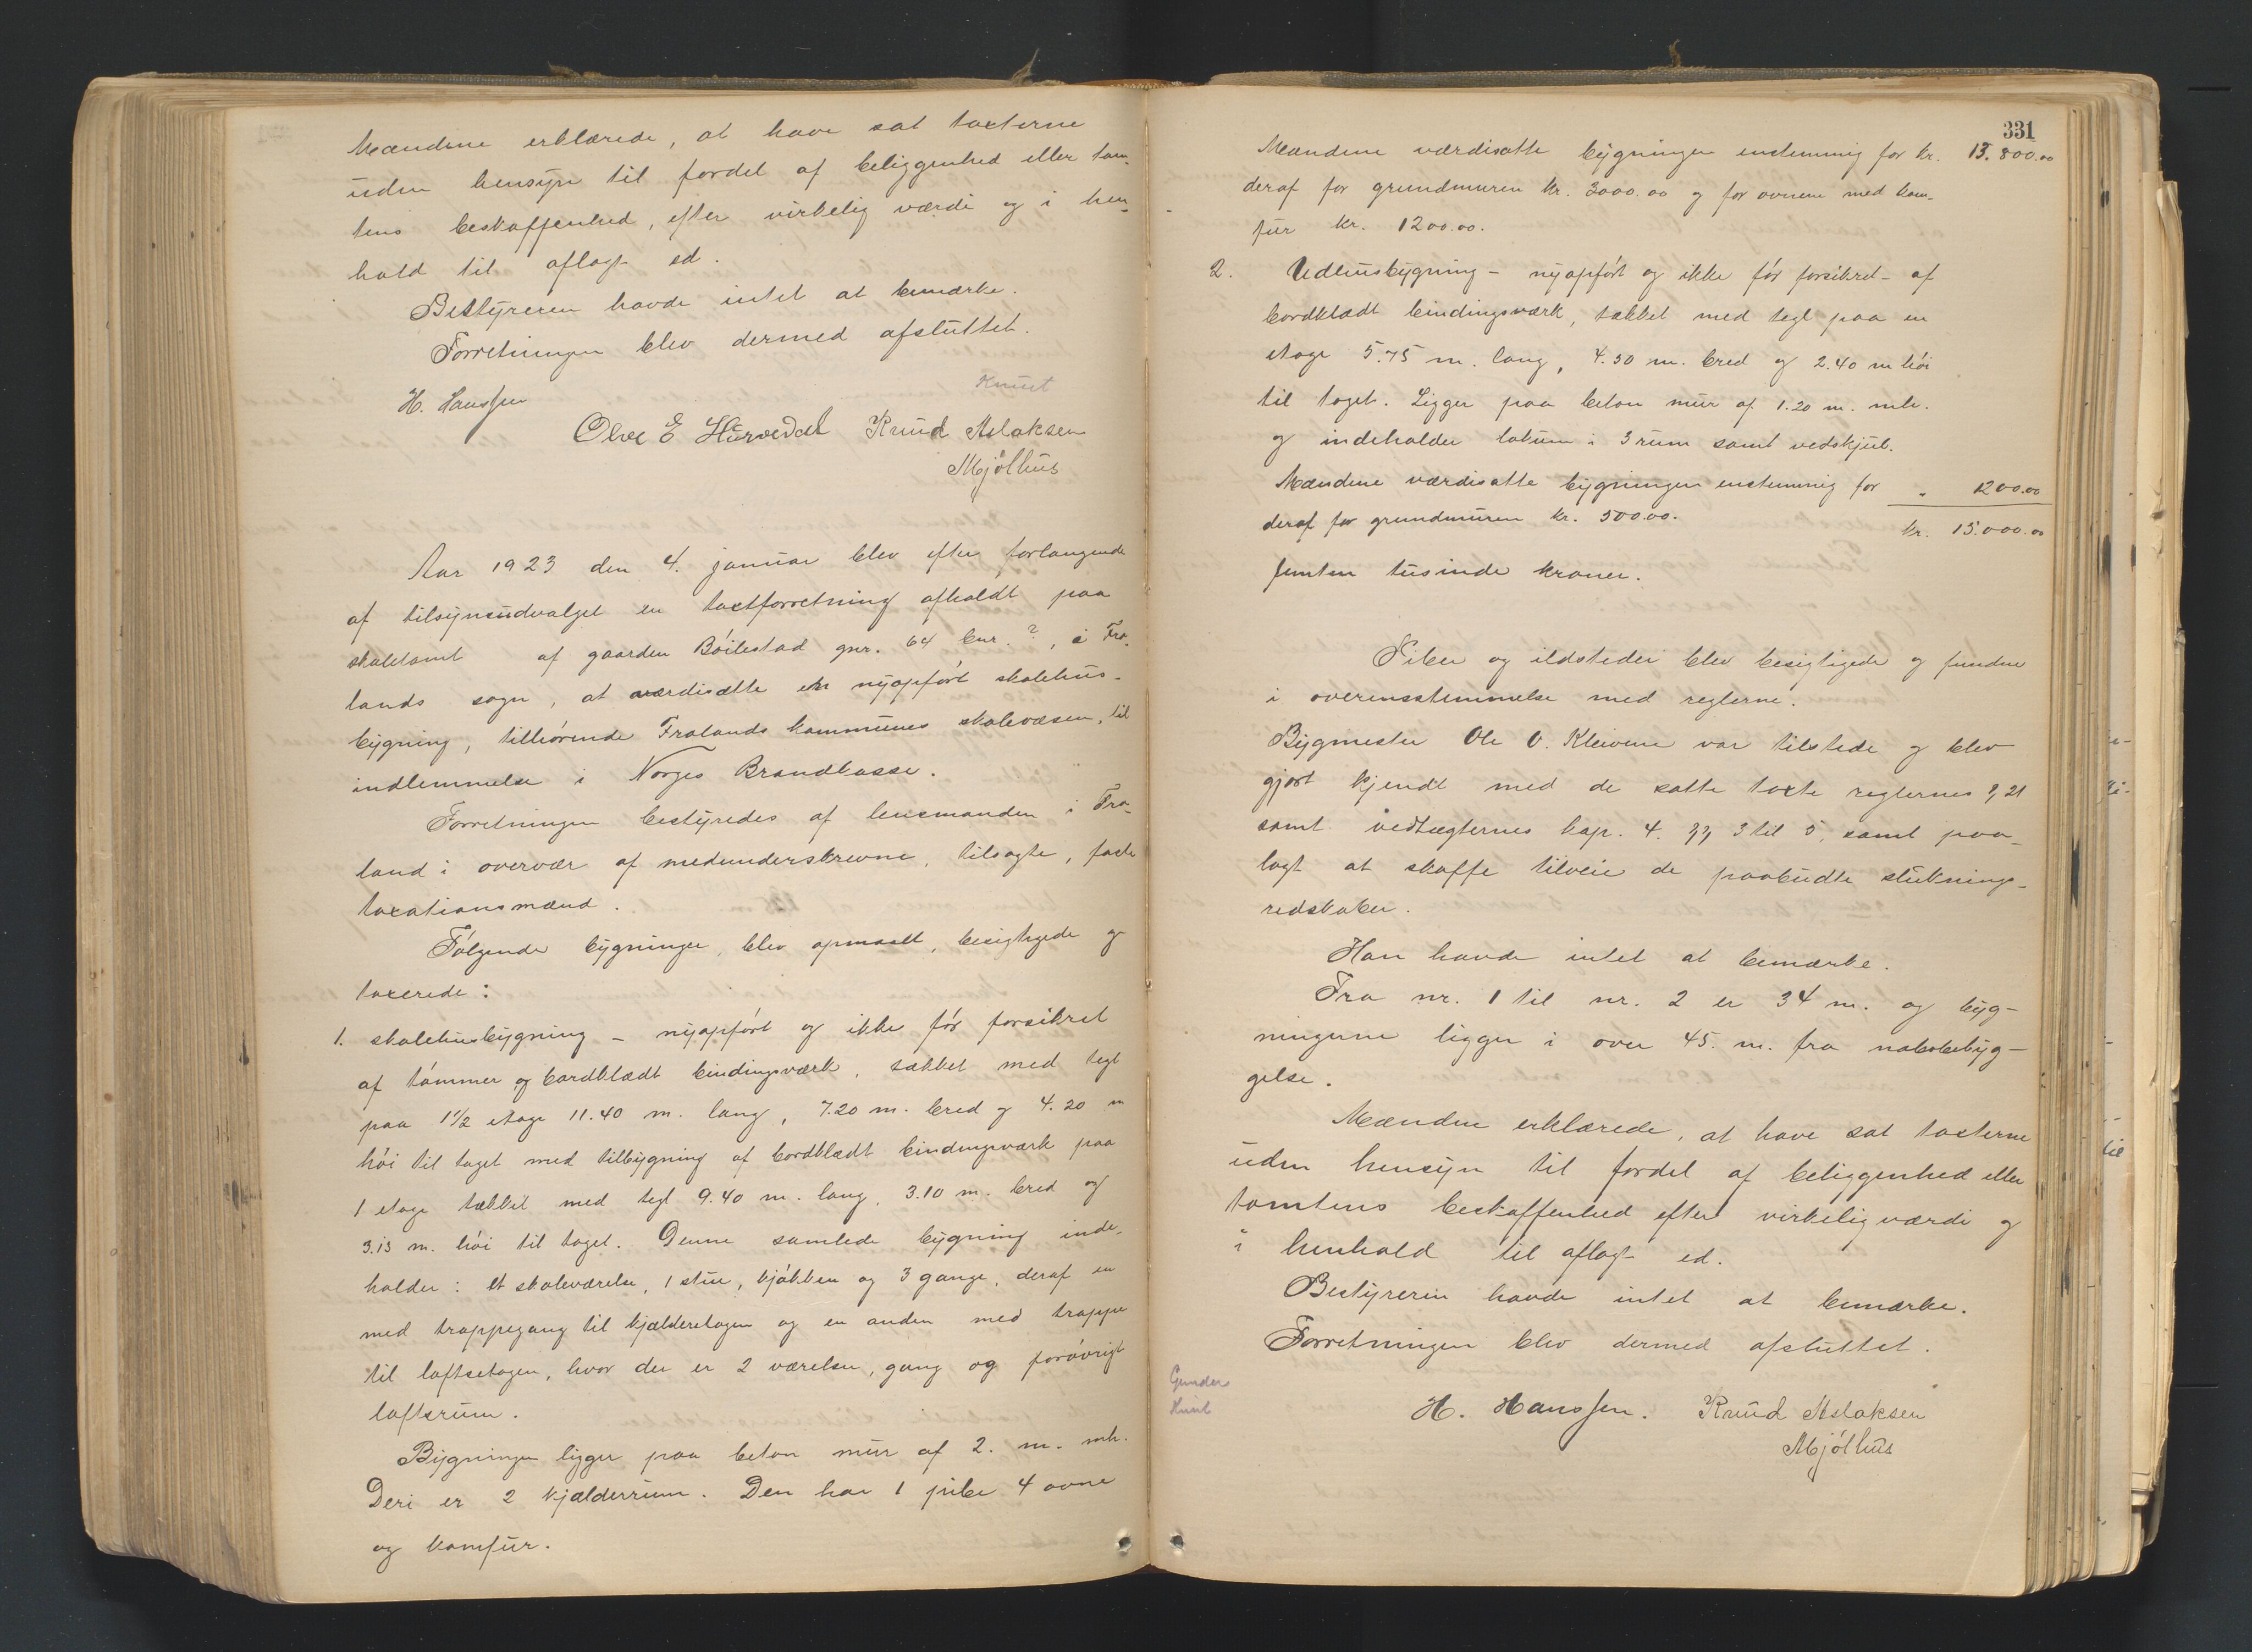 Mændene erklærede, at have sat taxterne
uden hensyn til fordel af beliggenhed eller tom-
tens beskaffenhed, efter virkelig værdi og i hen-
hold til aflagt ed.
Bestyreren havde intet at bemærke.
Forretningen blev dermed afsluttet.
Knut
H. Hanssen
Olve E Hurvedal Knud Aslaksen
Mjølhus
Aar 1923 den 4. januar blev efter forlangende
af tilsynsudvalget en taxtforretning afholdt paa
skoletomt af gaarden Böilestad gnr. 64 bnr. ?, i Fro-
lands sogn, at værdisætte en nyopført skolehus-
bygning, tilhørende Frolands kommunes skolevæsen, til
indlemmelse i Norges Brandkasse.
Forretningen bestyredes af lensmanden i Fro-
land i overvær af medunderskrevne, tilsagte, faste
taxationsmænd.
Følgende bygninger, blev opmaalt, besigtigede og
taxerede:
1. skolehusbygning – nyopført og ikke før forsikret
af tømmer og bordklædt bindingsværk, takket med tegl
paa 1½ etage 11.40 m. lang, 7.20 m. bred og 4.20 m
høi til taget med tilbygning af bordklædt bindingsværk paa
1 etage tækket med tegl 9.40 m. lang, 3.10 m. bred og
3.15 m. høi til taget. Denne samlede bygning inde-
holder: et skoleværelse, 1 stue, kjøkken og 3 gange, deraf en
med trappegang til kjælderetagen og en anden med trappe
til loftsetagen, hvor der er 2 værelser, gang og forøvrigt
loftsrum.
Bygningen ligger paa beton mur af 2. m. mh.
Deri er 2 kjælderrum. Den har 1 pibe 4 ovne
og komfur.
331
Mændene værdisatte bygningen enstemmig for kr. 13.800.00
deraf for grundmuren kr. 3000.00 og for ovnene med kom-
fur kr. 1200.00.
2. Udhusbygning – nyopført og ikke før forsikret – af
bordklædt bindingsværk, tækket med tegl paa en
etage 5.75 m. lang, 4.30 m. bred og 2.40 m høi
til taget. Ligger paa beton mur af 1.20 m. mh.
og indeholder lokum i 3 rum samt vedskjul.
Mændene værdisatte bygningen enstemmig for " 1200.00
deraf for grundmuren kr. 500.00.
kr. 15.000.00
femten tusinde kroner.
Piber og ildsteder blev besigtigede og fundne
i overensstemmelse med reglerne.
Bygmester Ole O. Kleivene var tilstede og blev
gjort kjendt med de satte taxte reglernes § 21
samt vedtægternes kap. 4. §§ 3 til 5 samt paa-
lagt at skaffe tilveie de paabudte sluknings-
redskaber.
Han havde intet at bemærke.
Fra nr. 1 til nr. 2 er 34 m. og byg-
ningerne ligger i over 45. m. fra nabobebyg-
gelse.
Mændene erklærede, at have sat taxterne
uden hensyn til fordel af beliggenhed eller
tomtens beskaffenhed efter virkelig værdi og
i henhold til aflagt ed.
Bestyreren havde intet at bemærke.
Forretningen blev dermed afsluttet.
Gunder
H. Hanssen. Knud Aslaksen
Mjølhus